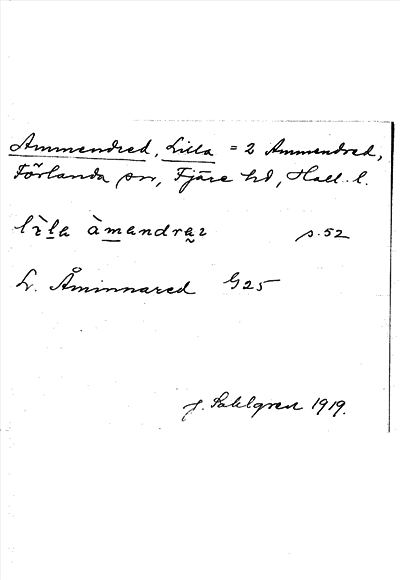 Ammendred, Lilla = 2 Ammendred,
Förlanda sn, Fjäre hd, Hall. l.
lı̀la àmandraz p. 52
L. Åminnared G25
J. Sahlgren 1919.